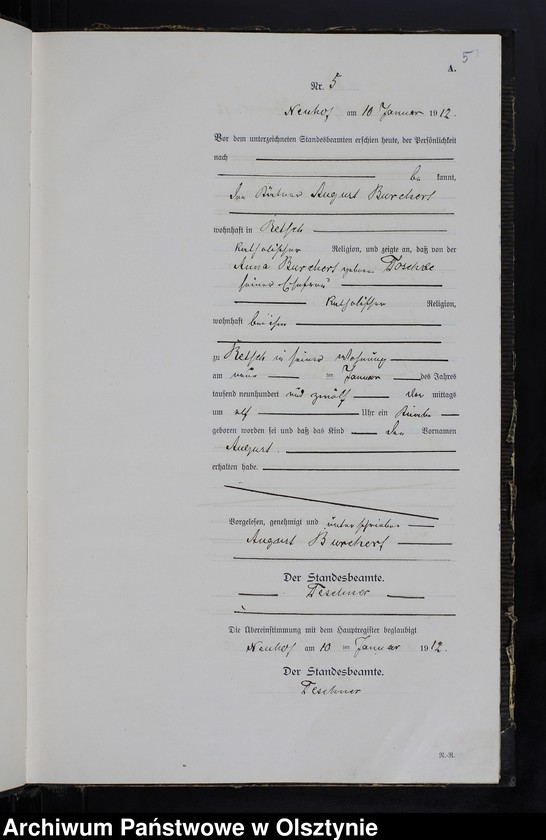 5
A.
Nr. 5
Neuhof am 10 Januar 1912.
Vor dem unterzeichneten Standesbeamten erschien heute, der Persönlichkeit
nach
be kannt,
der August Burchert
wohnhaft in Retsch
katholischer Religion, und zeigte an, daß von der
Anna Burchert geboren Poschke
seiner Ehefrau
katholischer Religion,
wohnhaft bei ihm
zu Retsch in seiner Wohnung
am neun ten Januar des Jahres
tausend neunhundert und zwölf Vor mittags
um elf Uhr ein Knabe
geboren worden sei und daß das Kind den Vornamen
August
erhalten habe.
Vorgelesen, genehmigt und unterschrieben
August Burchert
Der Standesbeamte.
Teschner
Die Übereinstimmung mit dem Hauptregister beglaubigt
Neuhof am 10 ten Januar 1912.
Der Standesbeamte.
Teschner
R.-R.
Archiwum Państwowe w Olsztynie